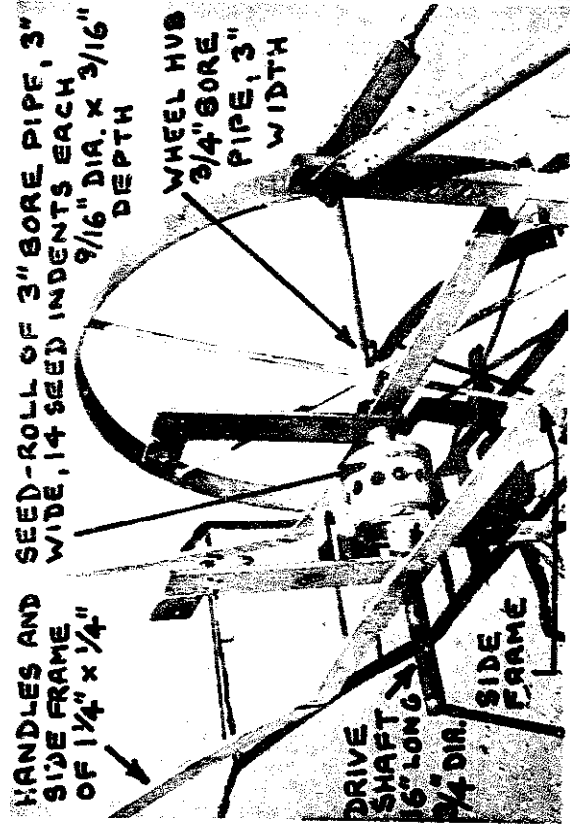 HANDLES AND
SIDE FRAME
OF 1¼" x ¼"
SEED-ROLL OF 3" BORE PIPE, 3"
WIDE, 14 SEED INDENTS EACH
9/16" DIA. x 3/16"
DEPTH
WHEEL HUB
3/4" BORE
PIPE, 3"
WIDTH
DRIVE
SHAFT
16" LONG
3/4 DIA.
SIDE
FRAME